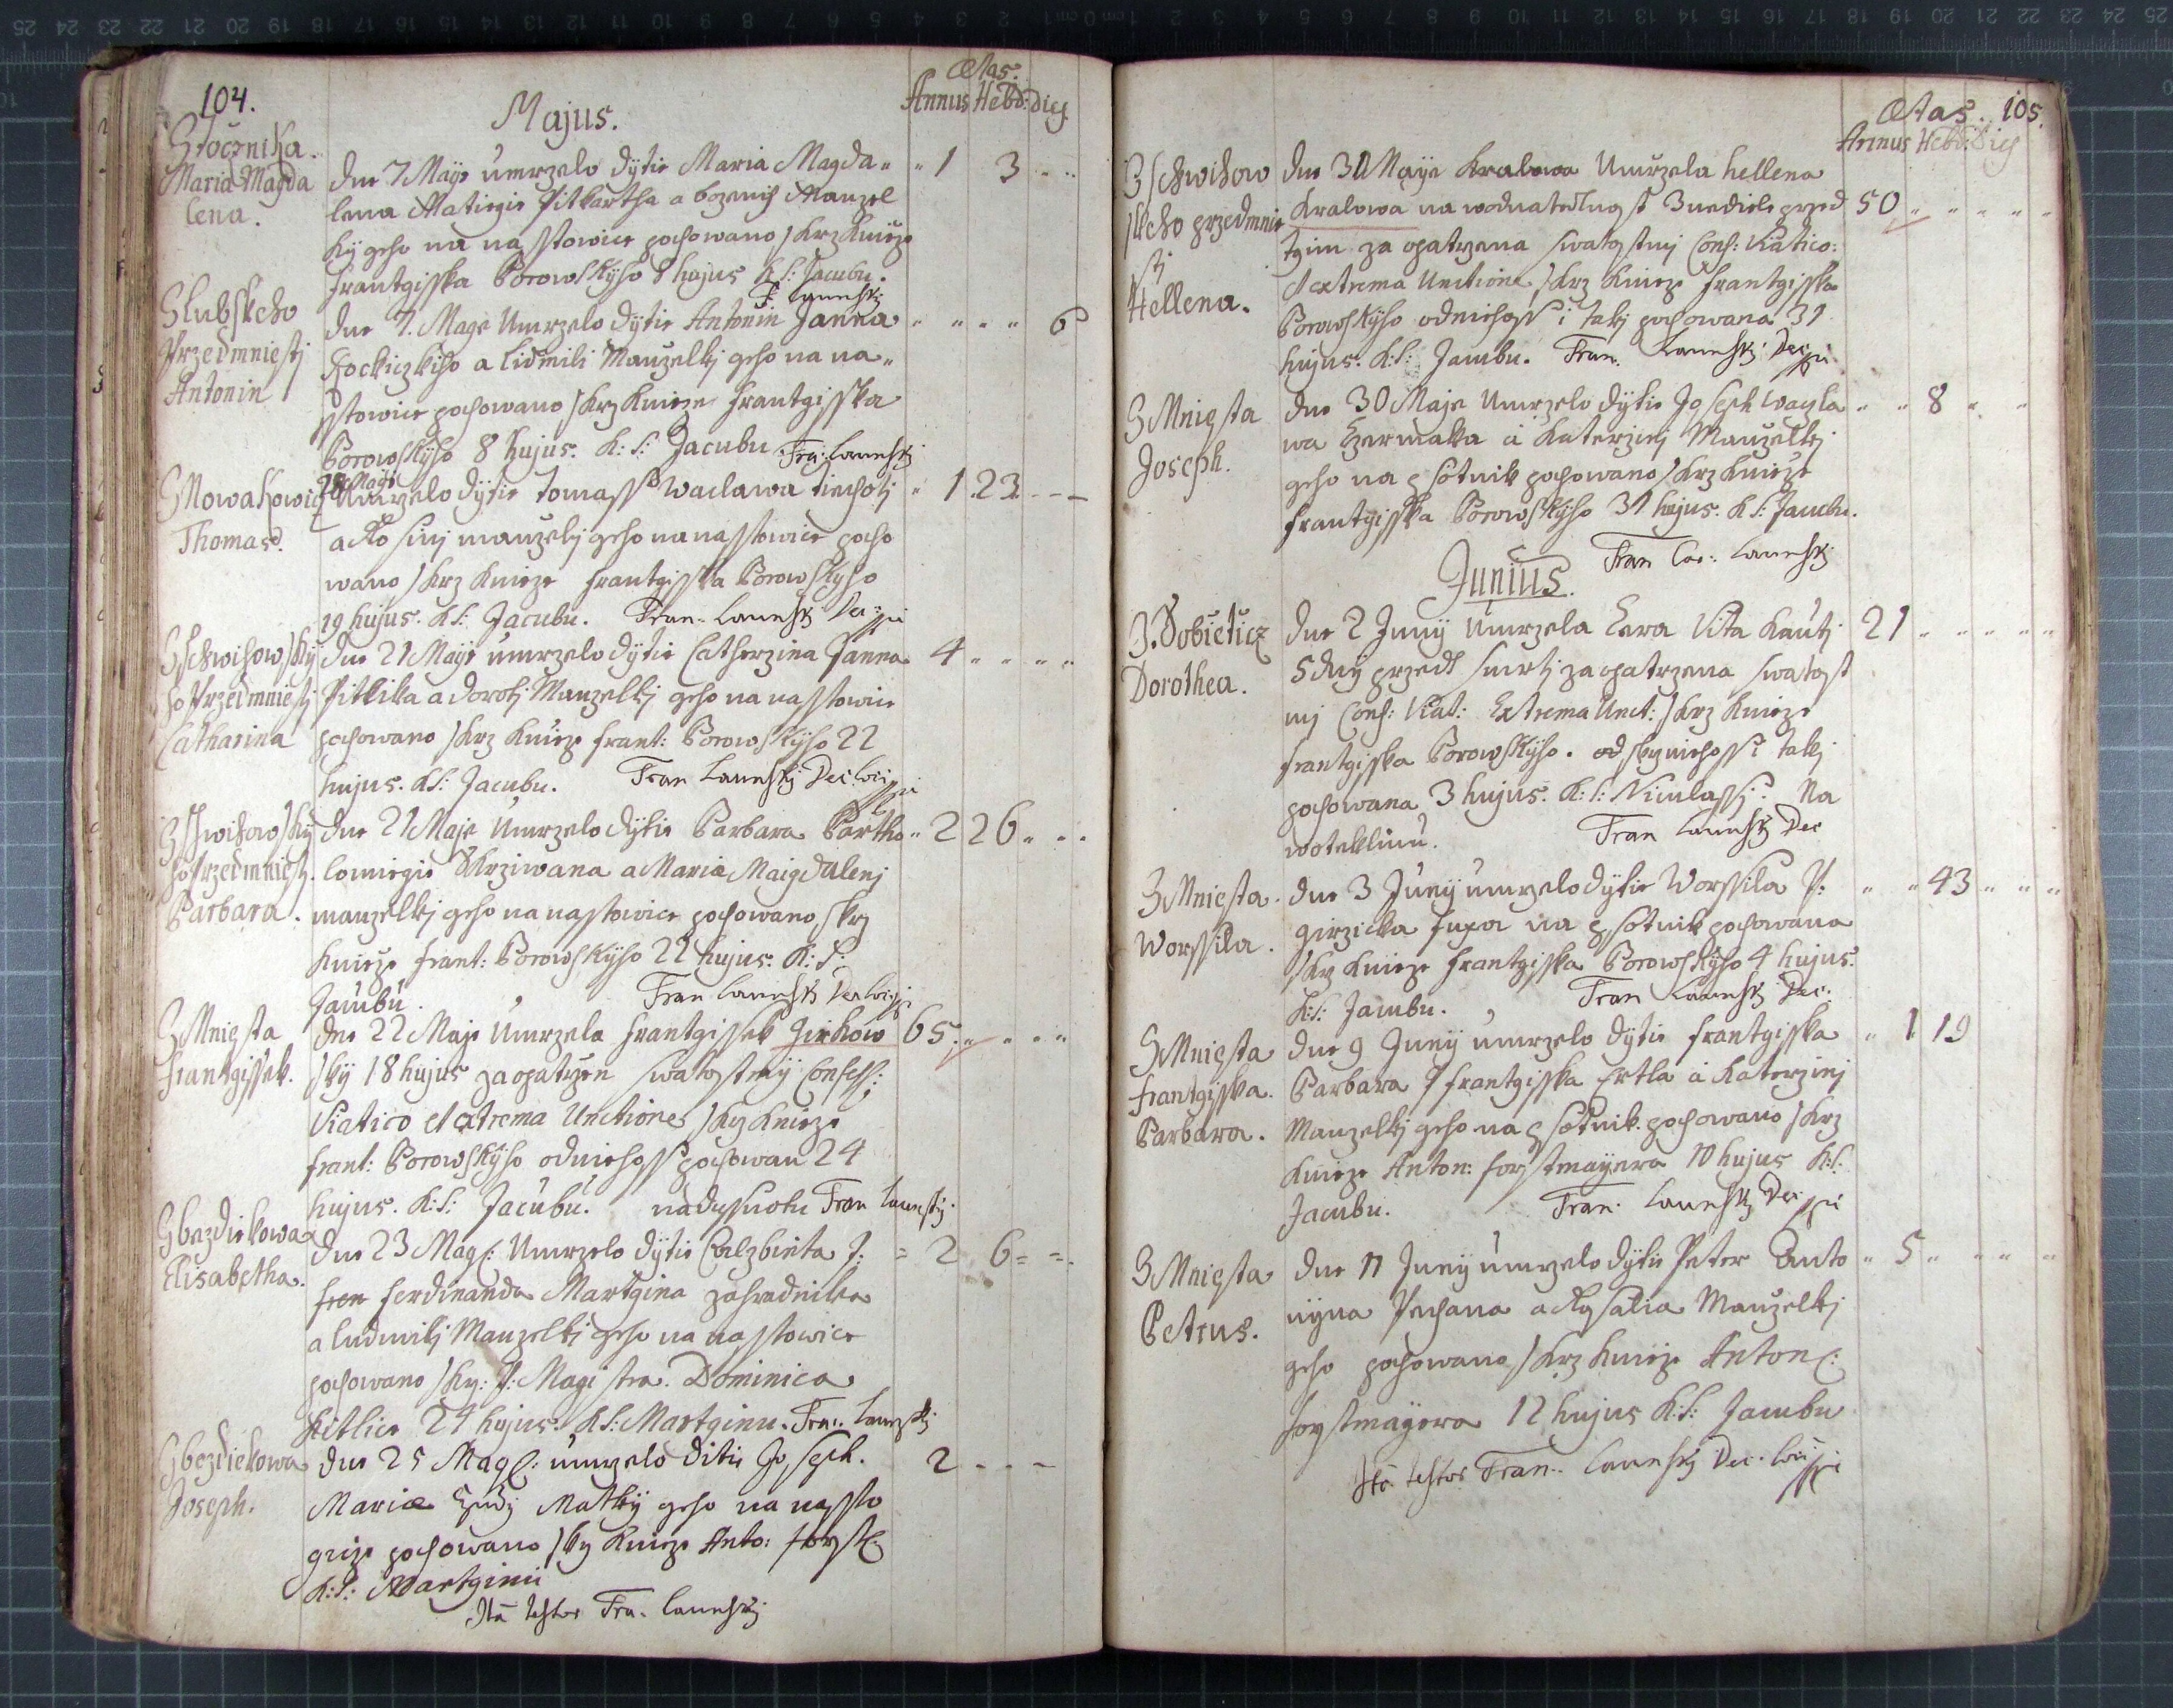 104.
Majus.
Ætas.
Annus Hebd: dies
Stocznika.
Maria Magda
lena.
dne 7 Maÿe umrzelo dÿtie Maria Magda„ „ 1 3 „ „
lena Matiegie Pitkartha a bozenij Manzel
kÿ geho na nasstowice pochowano skrz knieze
frantgisska Borowskÿho 8 hujus k S: Jacubu.
F Lanensky
Slubskeho
Przedmniestj
Antonin
dne 7. Mage Umrzelo dÿtie Antonin Janna „ „ „ „ 6
Rockiczkiho a Lidmili Manzelkj geho na na„
sstowice pochowano skrz knieze frantgisska
Borowskÿho 8 hujus. k: S: Jacubu Fra: Lanensky
S Nowakowicz
Thomas.
18 Maÿe
Umrzelo dÿtie tomass Waclawa tiechotj „ 1 23. – –
a Rosinj manzelkj geho na nasstowice pocho
wano skrz knieze frantgisska Borowskÿho
19 hujus. k S: Jacubu. Fran. Lanensky Dec: ppi
S Schwihowskÿ
ho Przedmniestj
Catharina
dne 21 Maÿe umrzelo dÿtie Catherzina Janna 4 „ „ „ „
Pitlika a dorotj Manzelkj geho na nasstowice
pochowano skrz knieze frant: Borowskÿho 22
hujus. k S: Jacubu. Fran Lanensky Dec: loci ppi
S Schwihowskÿ
ho Przedmniestj.
Barbara.
dne 21 Maje Umrzelo dÿtie Barbara Bartho„ 2 26 „ „ „
lomiegie Skrziwana a Maria Maigdalenj
manzelkj geho na nasstowice pochowano skrz
knieze frant: Borowskÿho 22 hujus. k: S:
Jacubu. Fran Lanensky Dec loci ppi
S Mniesta
frantgissek.
dne 22 Maje Umrzela frantgissek Jirkow 65. „ „ „ „
skÿ 18 hujus zaopatrzen swatostmÿ Confess:
Viatico et extrema Unctione skrz knieze
frant: Borowskÿho odniehoss pochowan 24
hujus. k: S: Jacubu. Fran Lanensky.
S bezdiekowa
Elisabetha.
dne 23 Mage: Umrzelo dÿtie Calzbieta P: = 2 6 = =
fran ferdinanda Martgina zahradnika
a ludmilj Manzelkj geho na nasstowice
pochowano skrz: P: Magistra. Dominica
kitlice 24 hujus. k S: Martginu. Fran. Lanensky
S bezdiekowa
Joseph.
dne 25 Mage: umrzelo ditie Joseph. 2 – – –
Mariæ Matkÿ geho na nassto
gicze pochowano skrz knieze Anto: forst:
k: S: Martginu
Ita testor Fra. Lanensky
105.
Ætas.
Annus Hebd: Dies
Z Schwihow
skeho przedmnie
stj
Hellena.
dne 30 Maÿe Kralowa Umrzela hellena
Kralowa na wodnatedlnost 3 nediele przed 50 „ „ „ „ „
tzim zaopatrzena swatostmj Conf: Viatico:
et extrema Unctione skrz knieze frantgisska
Borowskÿho odniehoss i takj pochowana 31
hujus. k: S: Jacubu. Fran. Lanensky Dec ppi
S Mniesta
Joseph.
dne 30 Maje Umrzelo dÿtie Joseph Wazla „ „ 8 „ „
wa Czermaka a Katerzinj Manzelkj
geho na psotnik pochowano skrz knieze
frantgisska Borowskÿho 31 hujus. k S: Jacubu.
Fran Car: Lanensky
Junius.
Z. Dobieticz
Dorothea.
dne 2 Junÿ Umrzela Cera Vita Kautj 21 „ „ „ „ „
5 dnÿ przedt smrtj zaopatrzena swatost
mj Conf: Viat: Extrema Unct: skrz knieze
frantgisska Borowskÿho. od skrz niehoss i takj
pochowana 3 hujus. k: S: Niculassj. Na
woteklinu. Fran Lanensky Dec
Z Mniesta.
Worssila.
dne 3 Junÿ umrzelo dÿtie Worssila P: „ „ 43 „ „ „
girzicka fuxa na psotnik pochowana
skrz knieze frantgisska Borowskÿho 4 hujus.
k: S: Jacubu. Fran Lanensky Dec:
S Mniesta
frantgisska.
Barbara.
dne 9 Junÿ umrzelo dÿtie frantgisska „ 1 19
Barbara P frantgisska Ertla a Katerzinj
Manzelkj geho na psotnik pochowano skrz
knieze Anton: forstmaÿera 10 hujus k: S:
Jacubu. Fran. Lanensky Dec ppi
Z Mniesta
Petrus.
dne 11 Junÿ umrzelo dÿtie Peter Anto „ 5 „ „ „ „
nÿna Pechana a Rosalia Manzelkj
geho pochowano skrz knieze Anton:
forstmaÿera 12 hujus k: S: Jacubu
Ita testor Fran. Lanensky Dec. loci ppi